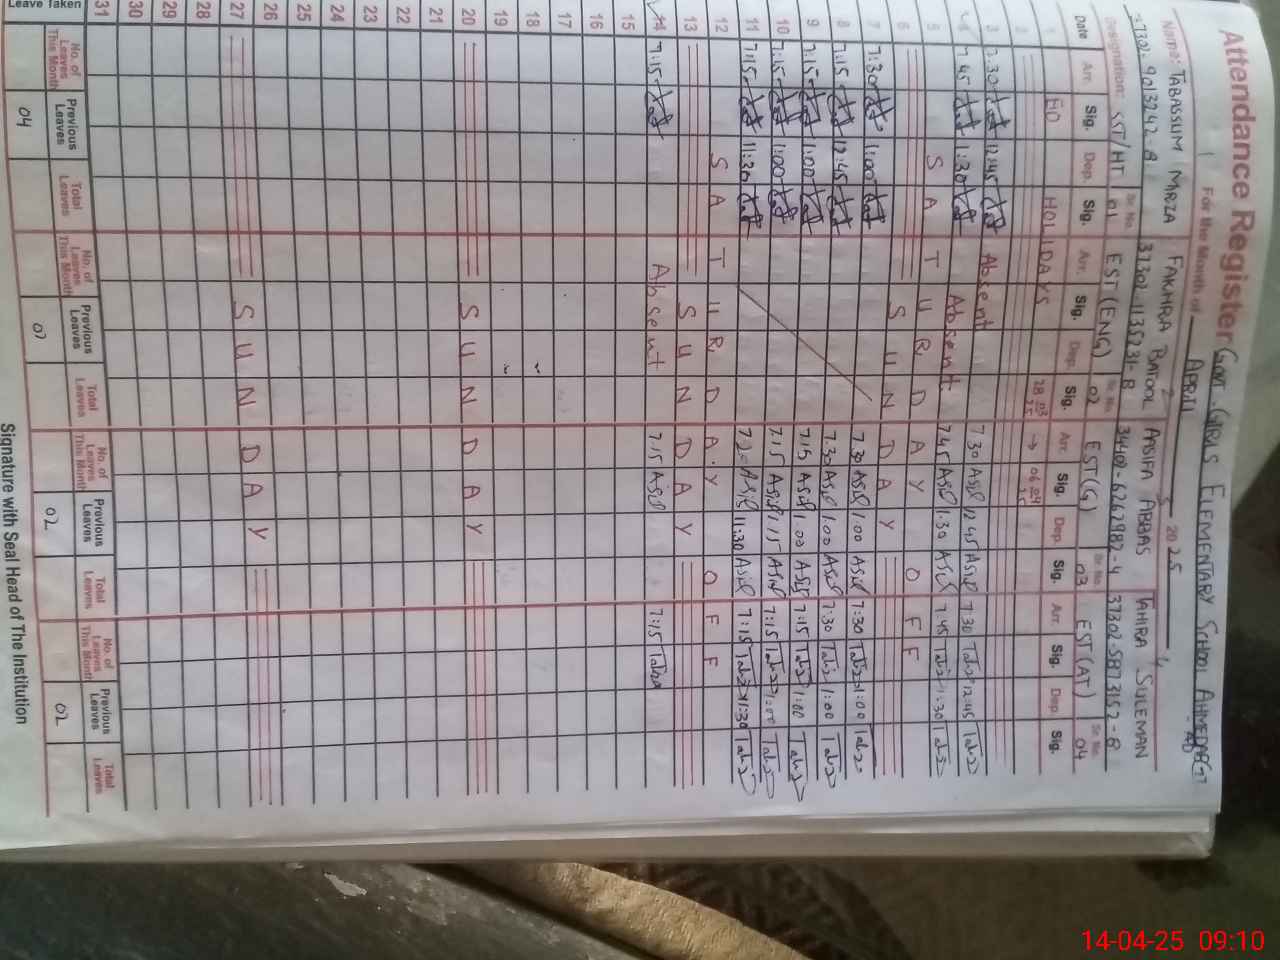 Attendance Register GOVT GIRLS ELEMENTARY SCHOOL AHMEDABAD
For the Month of APRIL 2025
1 2 3 4
Name: TABASSUM MIRZA FAKHRA BATOOL AASIFA ABBAS TAHIRA SULEMAN
37302-9013242-8 37302-1135231-8 34401-6262982-4 37302-5873152-8
Designation: SST/HT Sr. No. 01 EST(ENG) Sr. No. 02 EST(G) Sr. No. 03 EST(AT) Sr. No. 04
Date Arr. Sig. Dep. Sig. Arr. Sig. Dep. Sig. Arr. Sig. Dep. Sig. Arr. Sig. Dep. Sig.
1 EID HOLIDAYS 28 03 25 → 06 04 25
2
3 7:30 12:45 Absent 7:30 Asif 12:45 Asif 7:30 12:45
4 7:45 1:30 Absent 7:45 Asif 1:30 Asif 7:45 1:30
5 SATURDAY OFF
6 SUNDAY
7 7:30 1:00 7:30 Asif 1:00 Asif 7:30 1:00
8 7:15 12:45 7:30 Asif 1:00 Asif 7:30 1:00
9 7:15 1:00 7:15 Asif 1:00 Asif 7:15 1:00
10 7:15 1:00 7:15 Asif 1:15 Asif 7:15 1:00
11 7:15 11:30 7:20 Asif 11:30 Asif 7:15 11:30
12 SATURDAY OFF
13 SUNDAY
14 7:15 Absent 7:15 Asif 7:15
15
16
17
18
19
20 SUNDAY
21
22
23
24
25
26
27 SUNDAY
28
29
30
31
Leave Taken No. of Leaves This Month Previous Leaves Total Leaves No. of Leaves This Month Previous Leaves Total Leaves No. of Leaves This Month Previous Leaves Total Leaves No. of Leaves This Month Previous Leaves Total Leaves
04 07 02 02
Signature with Seal Head of The Institution
14-04-25 09:10